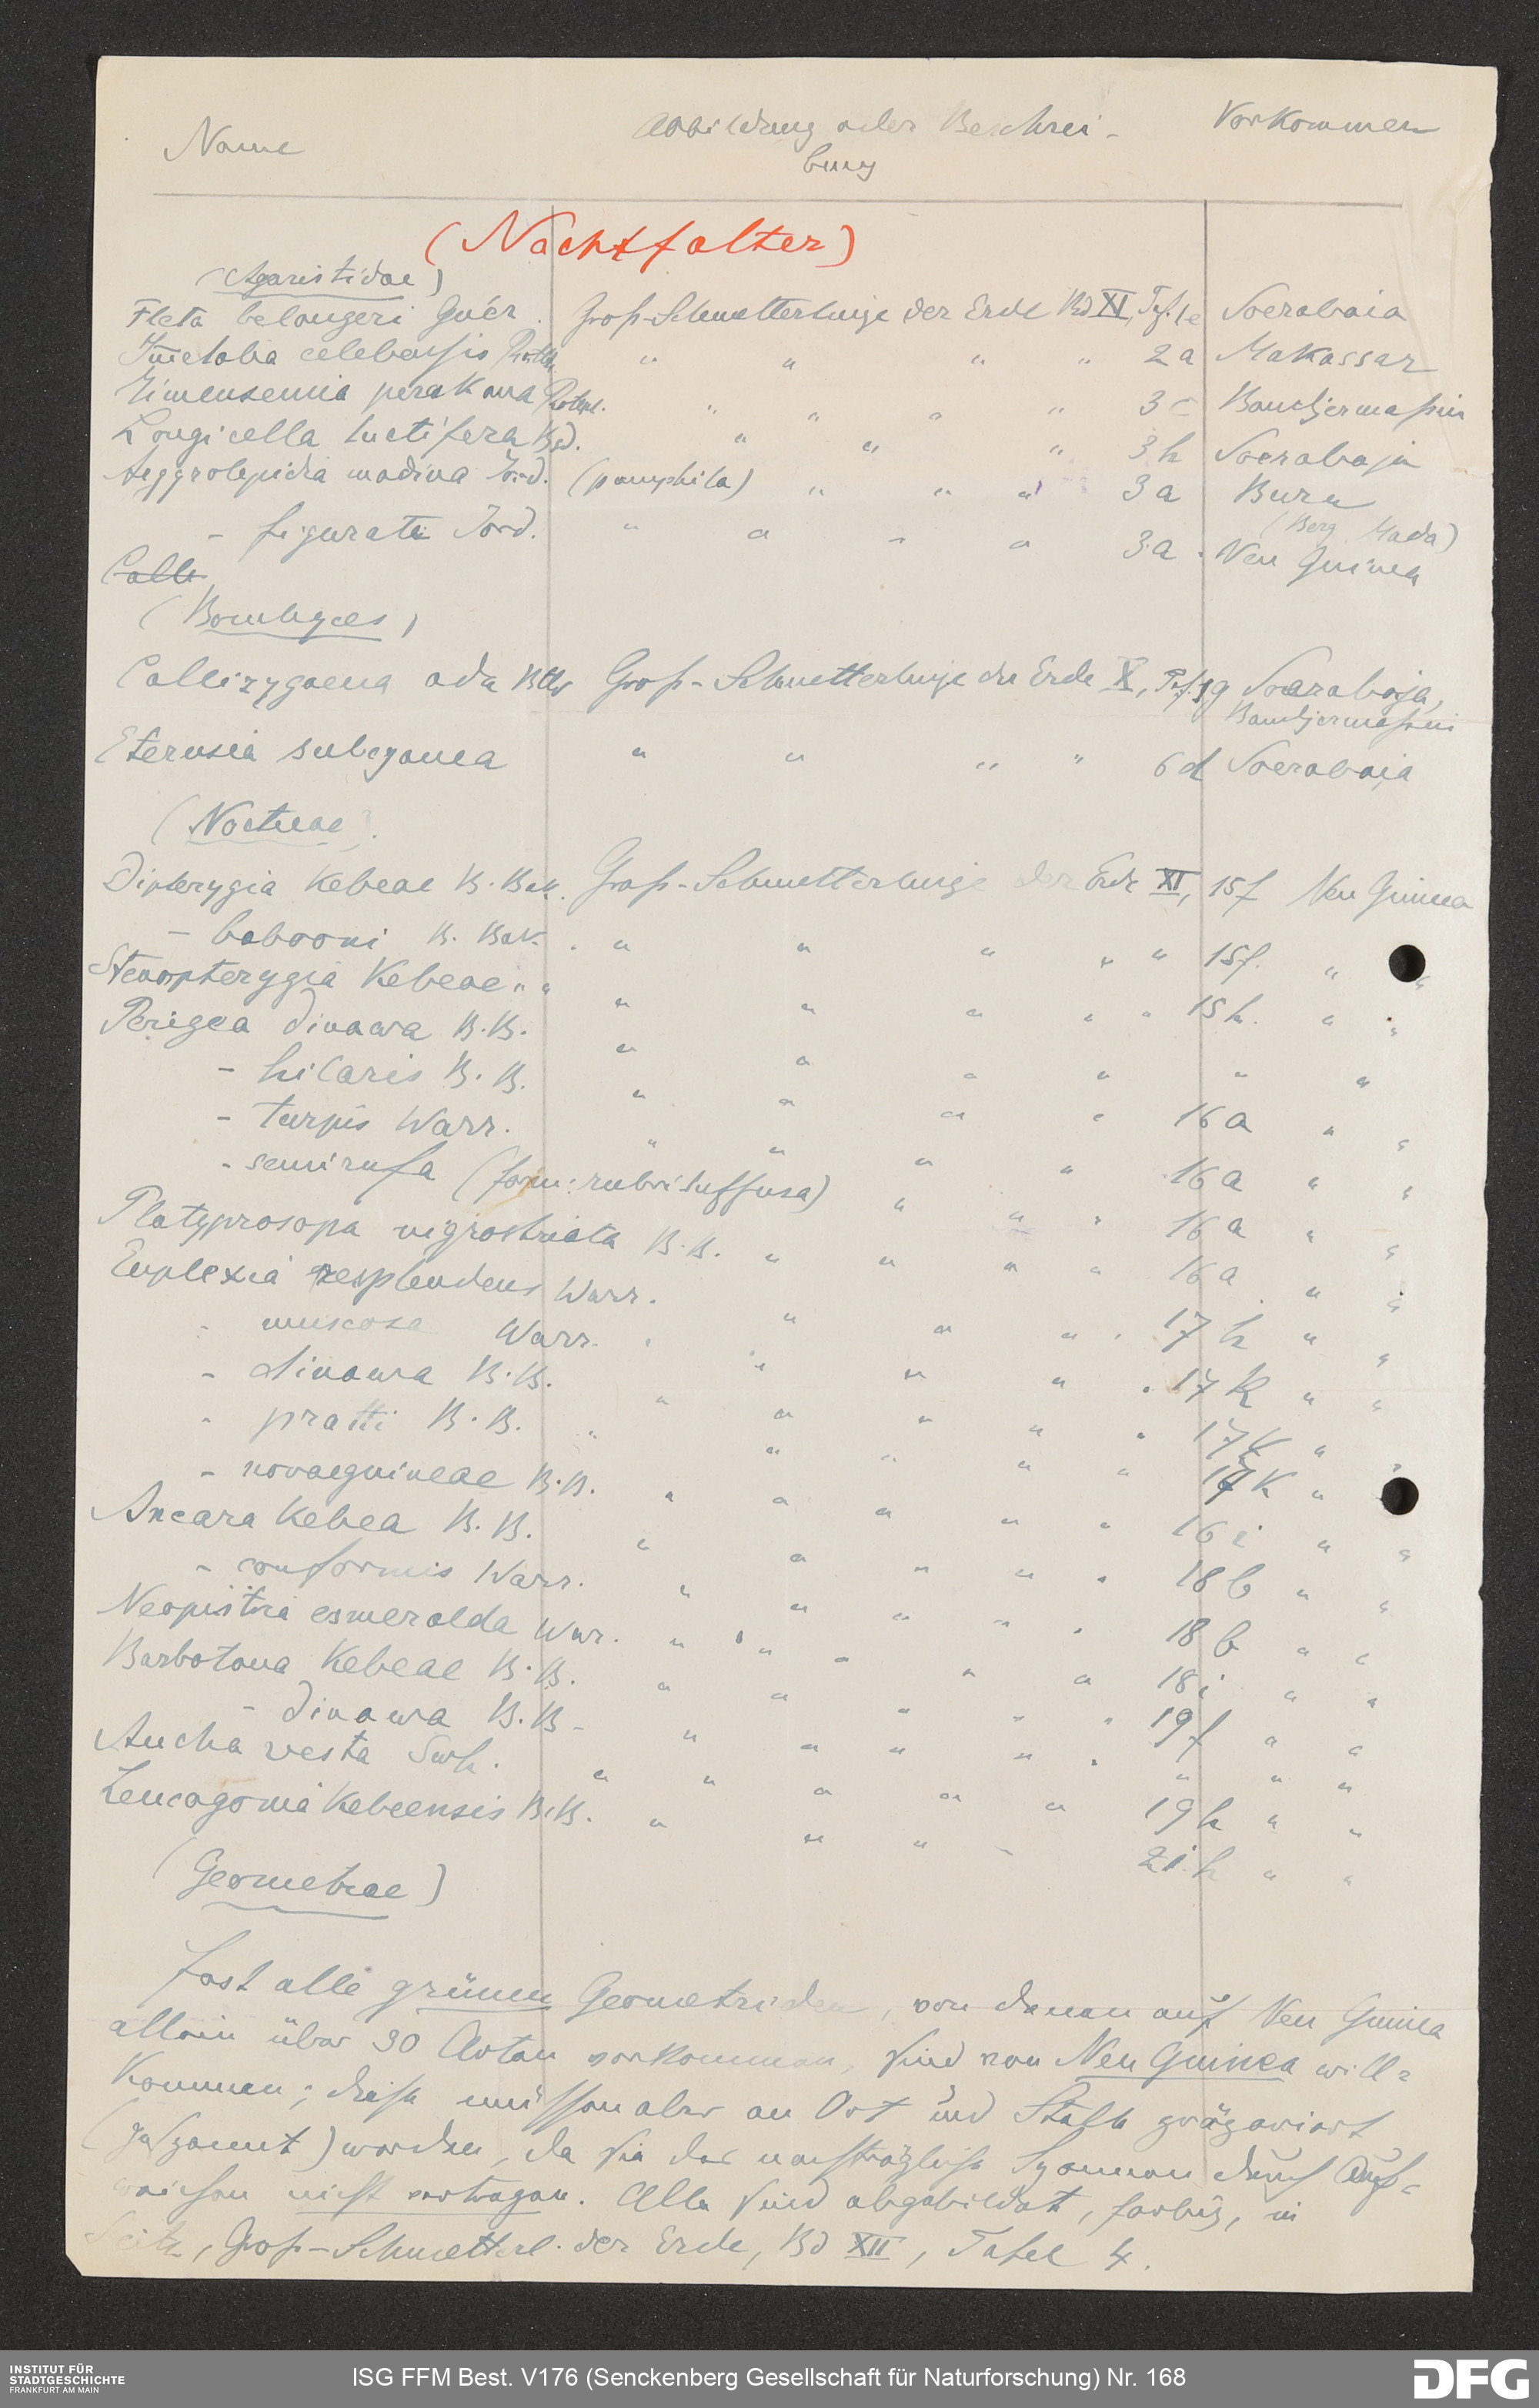 Name Abbildung oder Beschrei- Vorkommen
bung
(Nachtfalter)
(Agaristidae)
Fleta belangeri Guér. Groß-Schmetterlinge der Erde Bd XI, Taf. 1e Soerabaia
celebensis Rothsch. " " " " 2a Makassar
Zimensemia perakana Rotsch. " " " " 3c Bandjermaßin
Longicella luctifera Bsd. " " " 3h Soerabaja
Aeggrolepidia madina Jord. (pamphila) " " " 3a Buru
(Berg Mada)
- figurata Jord. " " " " 3a. Neu Guinea
Calli
(Bombyces)
Callizygaena ada Btlr Groß-Schmetterlinge der Erde X, Taf. 9g Soerabaja,
Bandjermaßin
Eterusia subcyanea " " " " 6d Soerabaia
(Noctuae)
Dipterygia Kebeae B. Bak. Groß-Schmetterlinge der Erde XI, 15f Neu Guinea
- babooni B. Bak. " " " " " 15f. " "
Stenopterygia Kebeae " " " " " " " 15h. " "
Perigea dinawa B.B. " " " " " " "
- hilaris B.B. " " " " 16a " "
- turpis Warr. " " " " 16a " "
- semirufa (form: rubrisuffusa) " " " 16a " "
Platyprosopa nigrostriata B.B. " " " " 16a " "
Euplexia resplendens Warr. " " " " 17h " "
- muscosa Warr. " " " " " 17k " "
- dinawa B.B. " " " " " 17k " "
- pratti B.B. " " " " " 17K " "
- novaeguineae B.B. " " " " " 16i " "
Ancara Kebea B.B. " " " " " 18b " "
- conformis Warr. " " " " " 18b " "
Neopistria esmeralda Warr. " " " " " 18i " "
Barbotana Kebeae B.B. " " " " " 19f " "
- dinawa B.B- " " " " " " " "
Aucha vesta Swh. " " " " " 19h " "
Leucogonia Kebeensis B.B. " " " " 21h " "
(Geometrae)
Fast alle grünen Geometriden, von denen auf Neu Guinea
allein über 30 Arten vorkommen, sind von Neu Guinea will=
kommen; diese müssen aber an Ort und Stelle präpariert
(gespannt) werden, da sie das nachträgliche Spannen durch Auf=
weichen nicht vertragen. Alle sind abgebildet, farbig, in
Seitz, Groß-Schmetterl. der Erde, Bd XII, Tafel 4.
INSTITUT FÜR
STADTGESCHICHTE
FRANKFURT AM MAIN
ISG FFM Best. V176 (Senckenberg Gesellschaft für Naturforschung) Nr. 168
DFG